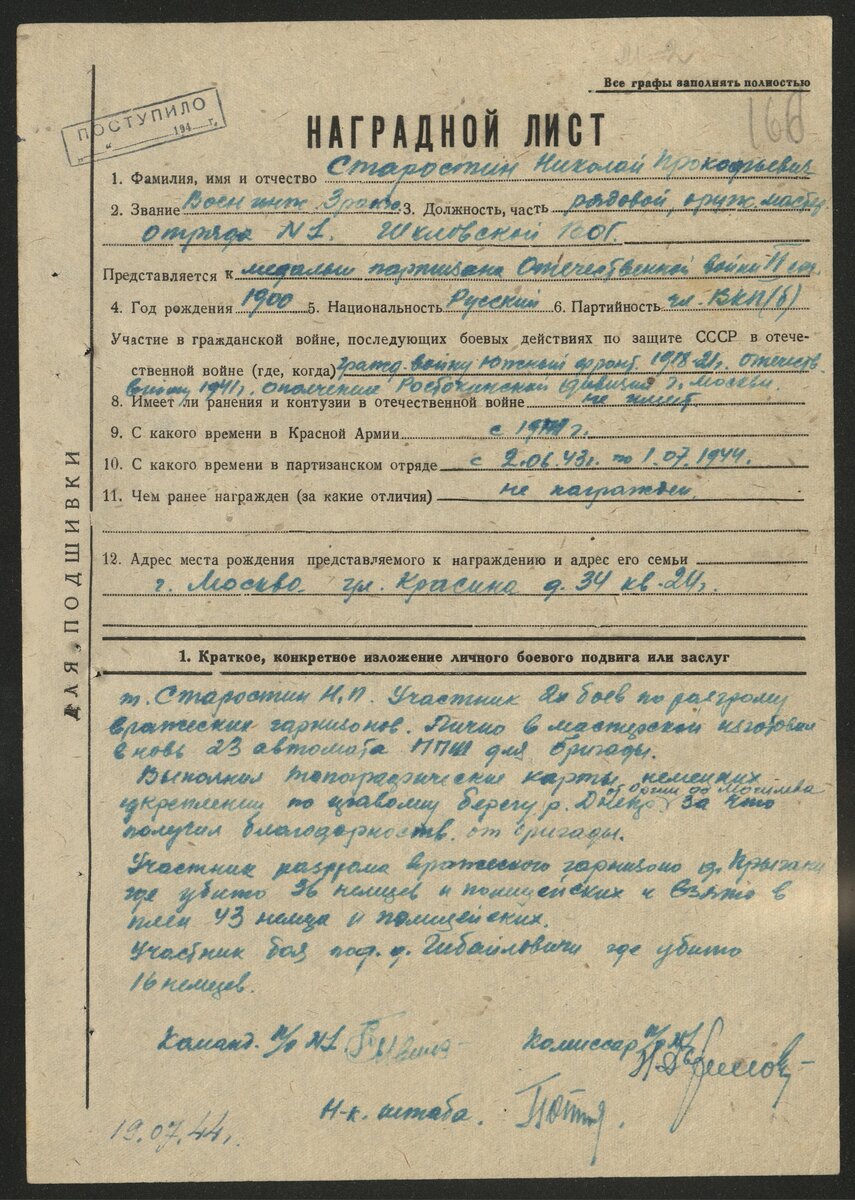 Все графы заполнять полностью
160
ПОСТУПИЛО
„ “ 194 г.
НАГРАДНОЙ ЛИСТ
1. Фамилия, имя и отчество Старостин Николай Прокофьевич
2. Звание Воен инж. 3 ранга 3. Должность, часть рядовой, оруж. мастер.
отряда №1. Шкловской ВОГ.
Представляется к медалью партизана Отечественной войны II ст.
4. Год рождения 1900 5. Национальность Русский 6. Партийность чл. ВКП(б)
Участие в гражданской войне, последующих боевых действиях по защите СССР в отече-
ственной войне (где, когда) Гражд. войну Южный фронт 1918-21г. отечеств.
войны 1941г. ополчение Ростокинской дивизии г. Москвы.
8. Имеет ли ранения и контузии в отечественной войне не имеет
9. С какого времени в Красной Армии с г.
10. С какого времени в партизанском отряде с 2.06.43г. по 1.07.1944.
11. Чем ранее награжден (за какие отличия) не награжден
12. Адрес места рождения представляемого к награждению и адрес его семьи
г. Москва ул. Красина д. 34 кв.
ДЛЯ ПОДШИВКИ
1. Краткое, конкретное изложение личного боевого подвига или заслуг
т. Старостин Н.П. Участник 2х боев по разгрому
вражеских гарнизонов. Лично в мастерской изготовил
вновь 23 автомата ППШ для бригады.
Выполнил топографические карты немецких
укреплений по правому берегу р. Днепр от Орши до Могилева за что
получил благодарность от бригады.
Участник разгрома вражеского гарнизона д.
где убито 36 немцев и полицейских и взято в
плен 43 немца и полицейских.
Участник боя под д. Гибайловичи где убито
16 немцев.
Команд. п/о №1 Комиссар п/о №1
Н-к. штаба.
19.07.44г.